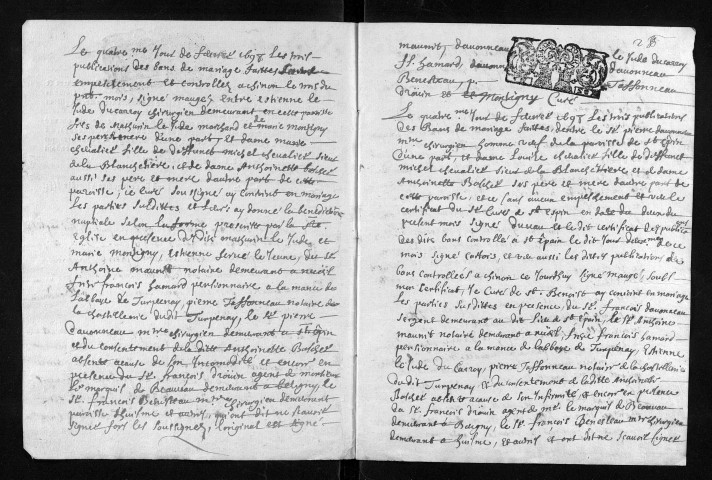 Le quatre me Jour de fevrier 1698 Les trois
publications des bans de mariage faittes sans
empeschement et controllez a chinon le ms du
pnt mois, signé mauge, entre estienne le
Jude Ducarroy chirurgien demeurant en cette paroisse
fils de mathurin le Jude marchand et de marie montigny
ses pere et mere d'une part, et dame marie
chevalier fille de deffunct michel chevalier sieur
de la Blanchetiere, et de dame Anthoinette Boisset
aussi ses pere et mere d'autre part de cette
paroisse, ie Curé soussigné ay conioint en mariage
Les parties susdittes et Leur ay donné la benediction
nuptiale selon la forme prescritte par la Ste
Eglise en presence dudit mathurin le Jude, et
marie montigny, estienne
Anthoine maunit notaire demeurant a nueil
françois hamard pensionnaire a la mance de
L'abbaye de Turpenay, pierre Taffonneau notaire de
la chastellenie dudit Turpenay, le Sr pierre
Davonneau mtre chirurgien demeurant a St Espin
et du consentement de la ditte Anthoinette Boisset
absente a cause de son Incomodité et encor en
presence du Sr françois Drouin agent de monsieur
le marquis de Beauvau demeurant a
Sr françois Benesteau mtre chirurgien demeurant
paroisse d'huisme et autres, qui ont dit ne scavoir
signer fors les soussignez, L'original est signé
maunit, davonneau
f. hamard, davonneau
Benesteau, p.
Drouin et
Montigny Curé
le Jude ducarroy
davonneau
Taffonneau
Le quatre me Jour de fevrier 1698 Les trois publications
des Bans de mariage faittes, d'entre le Sr pierre davonneau
mtre chirurgien homme veuf de la paroisse de St Espin
d'une part, et dame Louise chevalier fille de deffunct
michel chevalier sieur de la Blanchetiere, et dame
Anthoinette Boisset ses pere et mere d'autre part de
cette paroisse, et ce sans aucun empeschement et veu le
certificat du Sr Curé de St Espin en datte du deux du
present mois signé et le dit certificat des publications
des dits bans controllé a St Espain le dit Jour deux me de ce
mois signé et veu aussi les dittes publications de
bans controllées a chinon ce Jourdhuy signé mauge, soubs
mon certificat, Je Curé de St Benoist ay conioint en mariage
Les parties susdittes en presence du Sr françois davonneau
sergent demeurant au dit lieu de St Espin, le Sr Anthoine
maunit notaire demeurant a nueil, françois hamard
pensionnaire a la mance de L'abbaye de Turpenay, Estienne
le Jude du Carroy, pierre Taffonneau notaire de la chastellenie
du dit Turpenay et du consentement de la ditte Anthoinette
Boisset absente a cause de son Infirmité, et encor en presence
du Sr françois Drouin agent de mr le marquis de Beauvau
demeurant a le Sr françois Benesteau mtre chirurgien
demeurant a huisme, et autres et ont dit ne scavoir signer